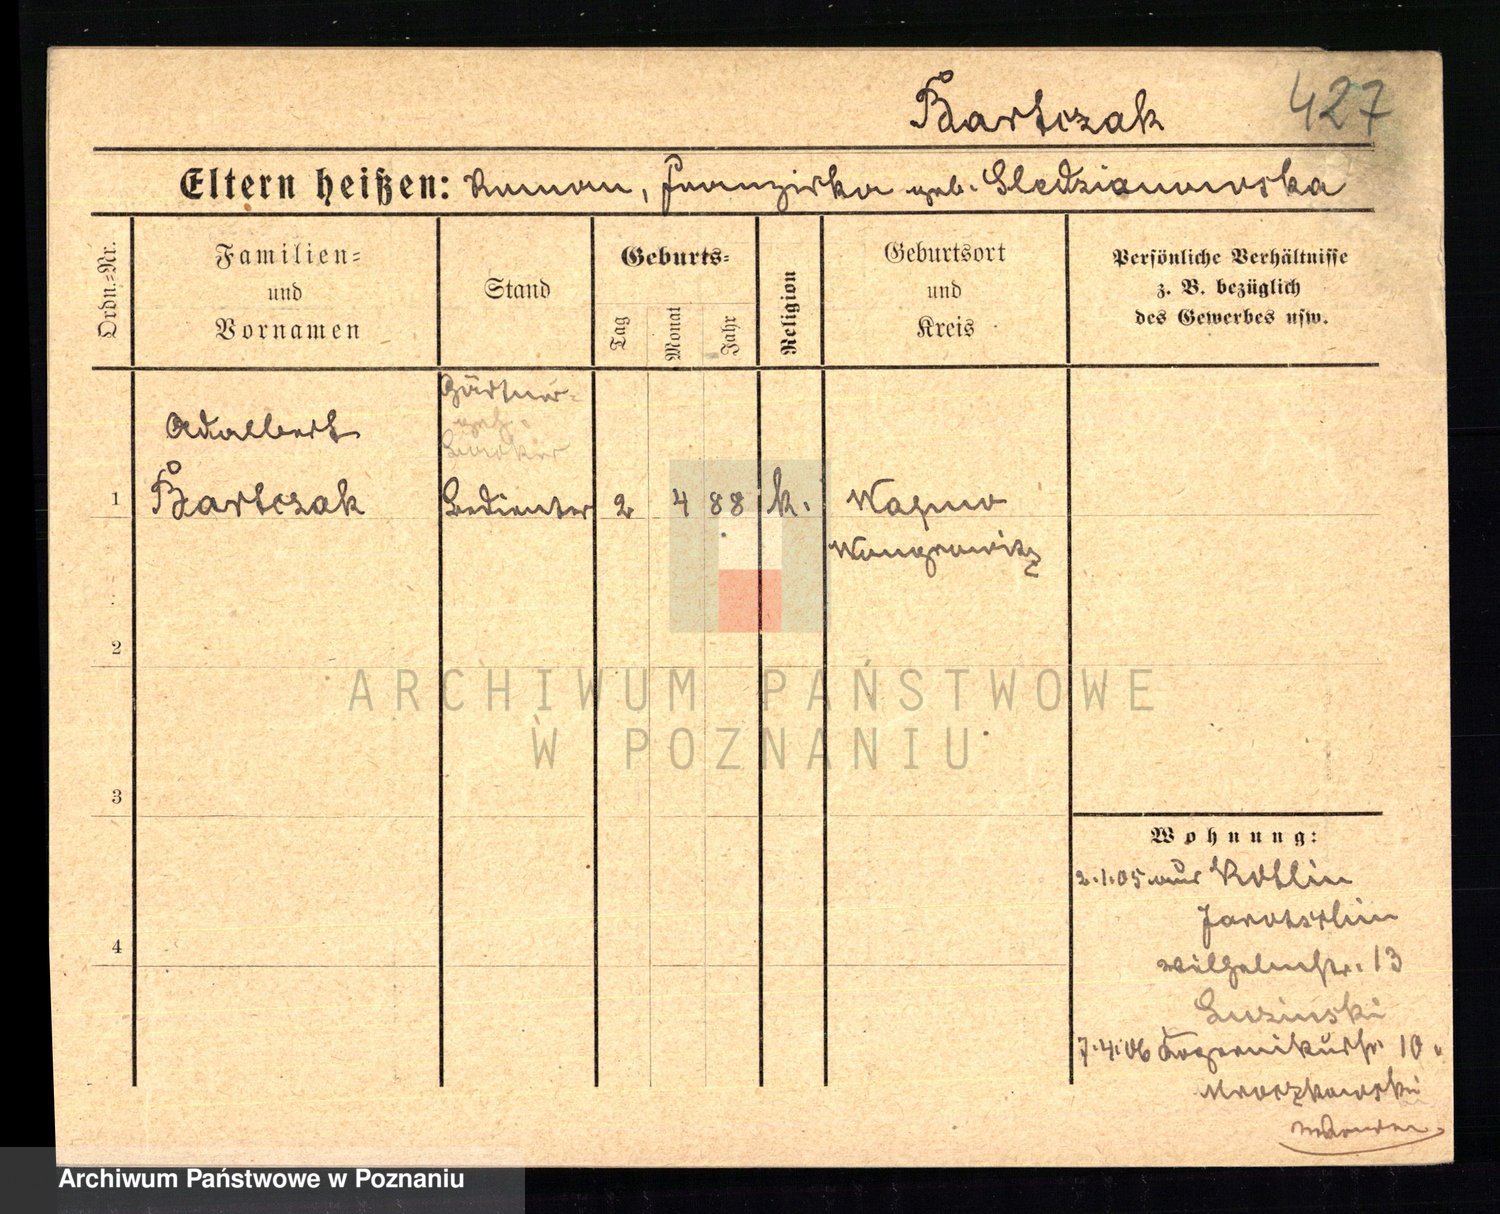 Bartczak 427
Eltern heißen: Roman, Franziska geb. Sledzianowska
Ordn.-Nr.
Familien-
und
Vornamen
Stand
Geburts-
Tag
Monat
Jahr
Religion
Geburtsort
und
Kreis
Persönliche Verhältnisse
z. B. bezüglich
des Gewerbes usw.
Gärtner-
Adalbert
1 Bartczak Bedienter 2 4 88 k. Wapno
Wongrowitz
2
3
4
Wohnung:
2.1.05 aus Kotlin
Jarotschin
Wilhelmstr. 13
7.4.06 Kopernikusstr 10
Mroczkowski
ARCHIWUM PAŃSTWOWE
W POZNANIU
Archiwum Państwowe w Poznaniu